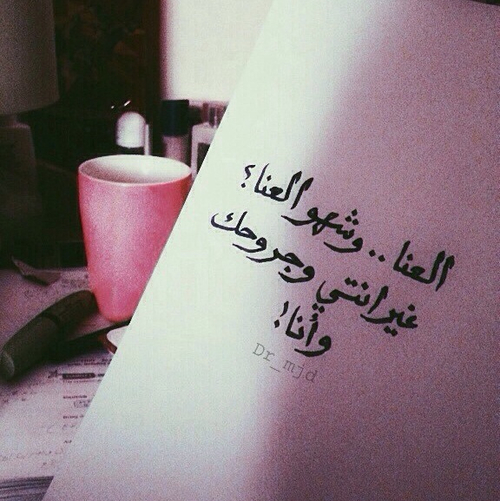 العنا .. وشهو العنا؟
غير انتي وجروحك
وأنا!
Dr_mjd